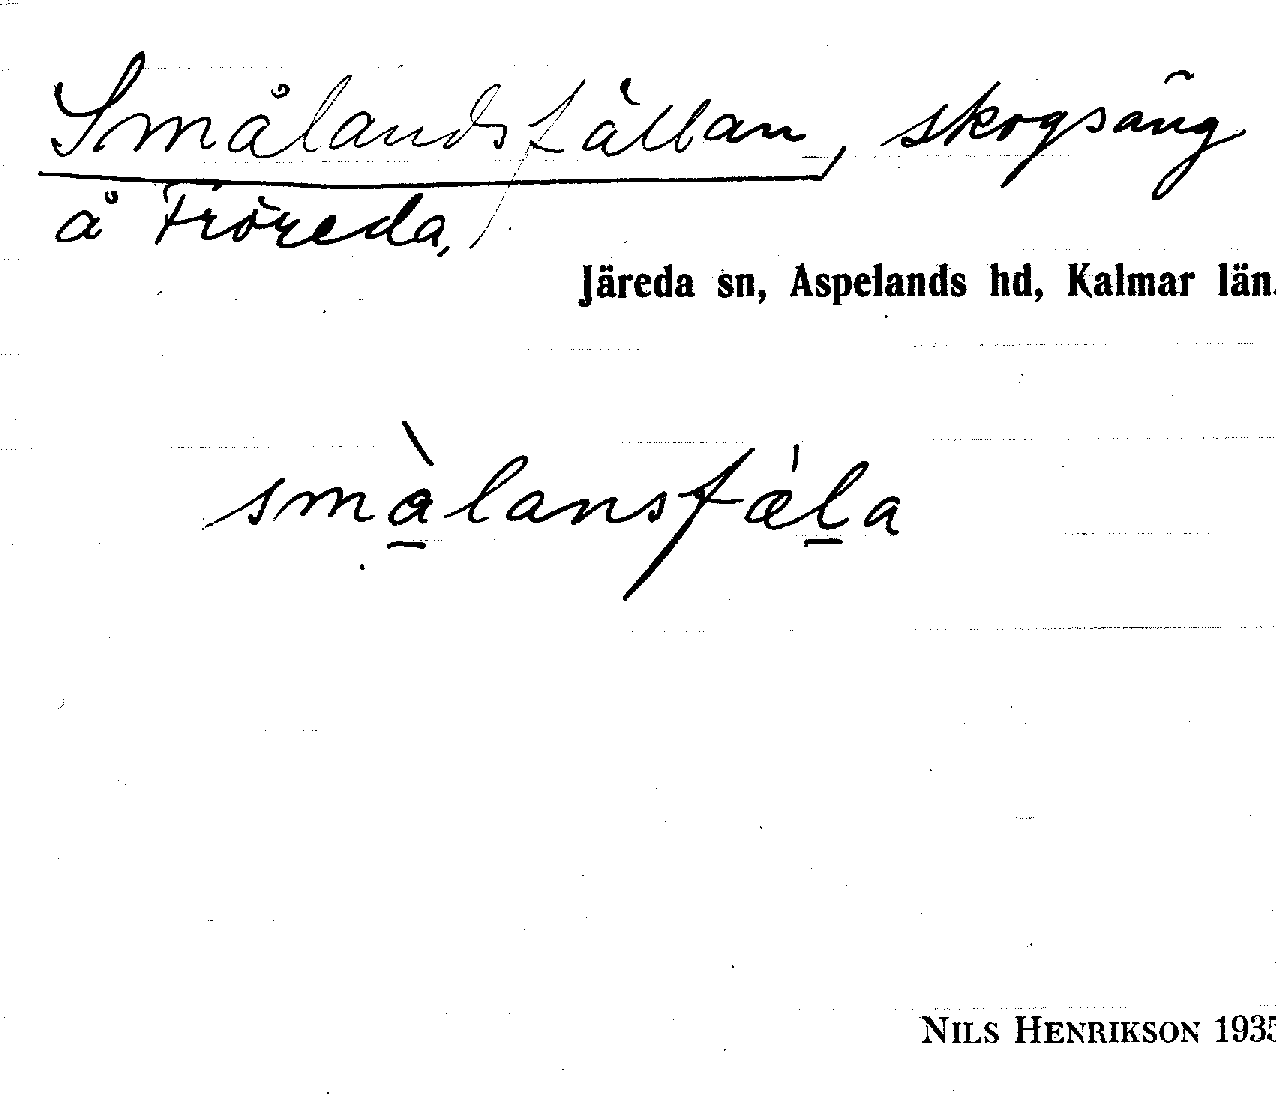 Smålandsfällan, skogsäng
å Fröreda,
Järeda sn, Aspelands hd, Kalmar län.
smàlansfæ̀la
NILS HENRIKSON 1935